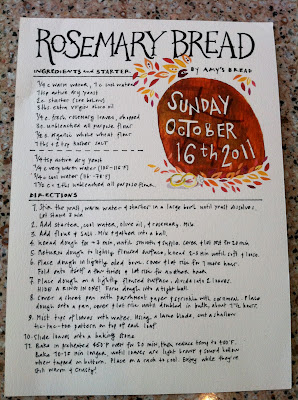 ROSEMARY BREAD
INGREDIENTS and STARTER
BY AMY'S BREAD
SUNDAY
OCTOBER
16th 2011
1/4 c warm water, 2 c cool water
1 tsp active dry yeast
2 c starter (see below)
3 tbs extra virgin olive oil
1/4 c fresh rosemary leaves, chopped
5c unbleached all purpose flour
1/2 c organic whole wheat flour
1 tbs + 2 tsp kosher salt
1/4 tsp active dry yeast
1/4 c very warm water (105-115°F)
3/4 c cool water (75-78°F)
unbleached all purpose flour
DIRECTIONS
1. Stir the yeast, warm water & starter in a large bowl until yeast dissolves.
Let stand 3 min
2. Add starter, cool water, olive oil, & rosemary. Mix
3. Add flour & salt. Mix & gather into a ball.
4. Knead dough for until smooth & supple. Cover & let rest for 20 min
5. Return dough to lightly floured surface, knead 2-3 min until soft &
6. Place dough in lightly oiled bowl. Cover & let rise for 1 more hour.
Fold onto itself a few times & let rise for another hour.
7. Place dough on a lightly floured surface, divide into 2 loaves.
Form dough into a tight ball.
8. Cover a sheet pan with parchment paper & sprinkle with cornmeal. Place
dough onto a pan, cover & let rise until doubled in bulk, about 1 1/2 hours.
9. Mist tops of loaves with water. Using a lame blade, cut a shallow
tic-tac-toe pattern on top of each loaf
10. Slide loaves onto a baking stone
Bake in preheated 450°F oven for 20 min, then reduce temp to 400°F.
Bake min longer, until loaves are light brown & sound hollow
when tapped on bottom. Place on a rack to cool. Enjoy while they're
still warm & crusty!